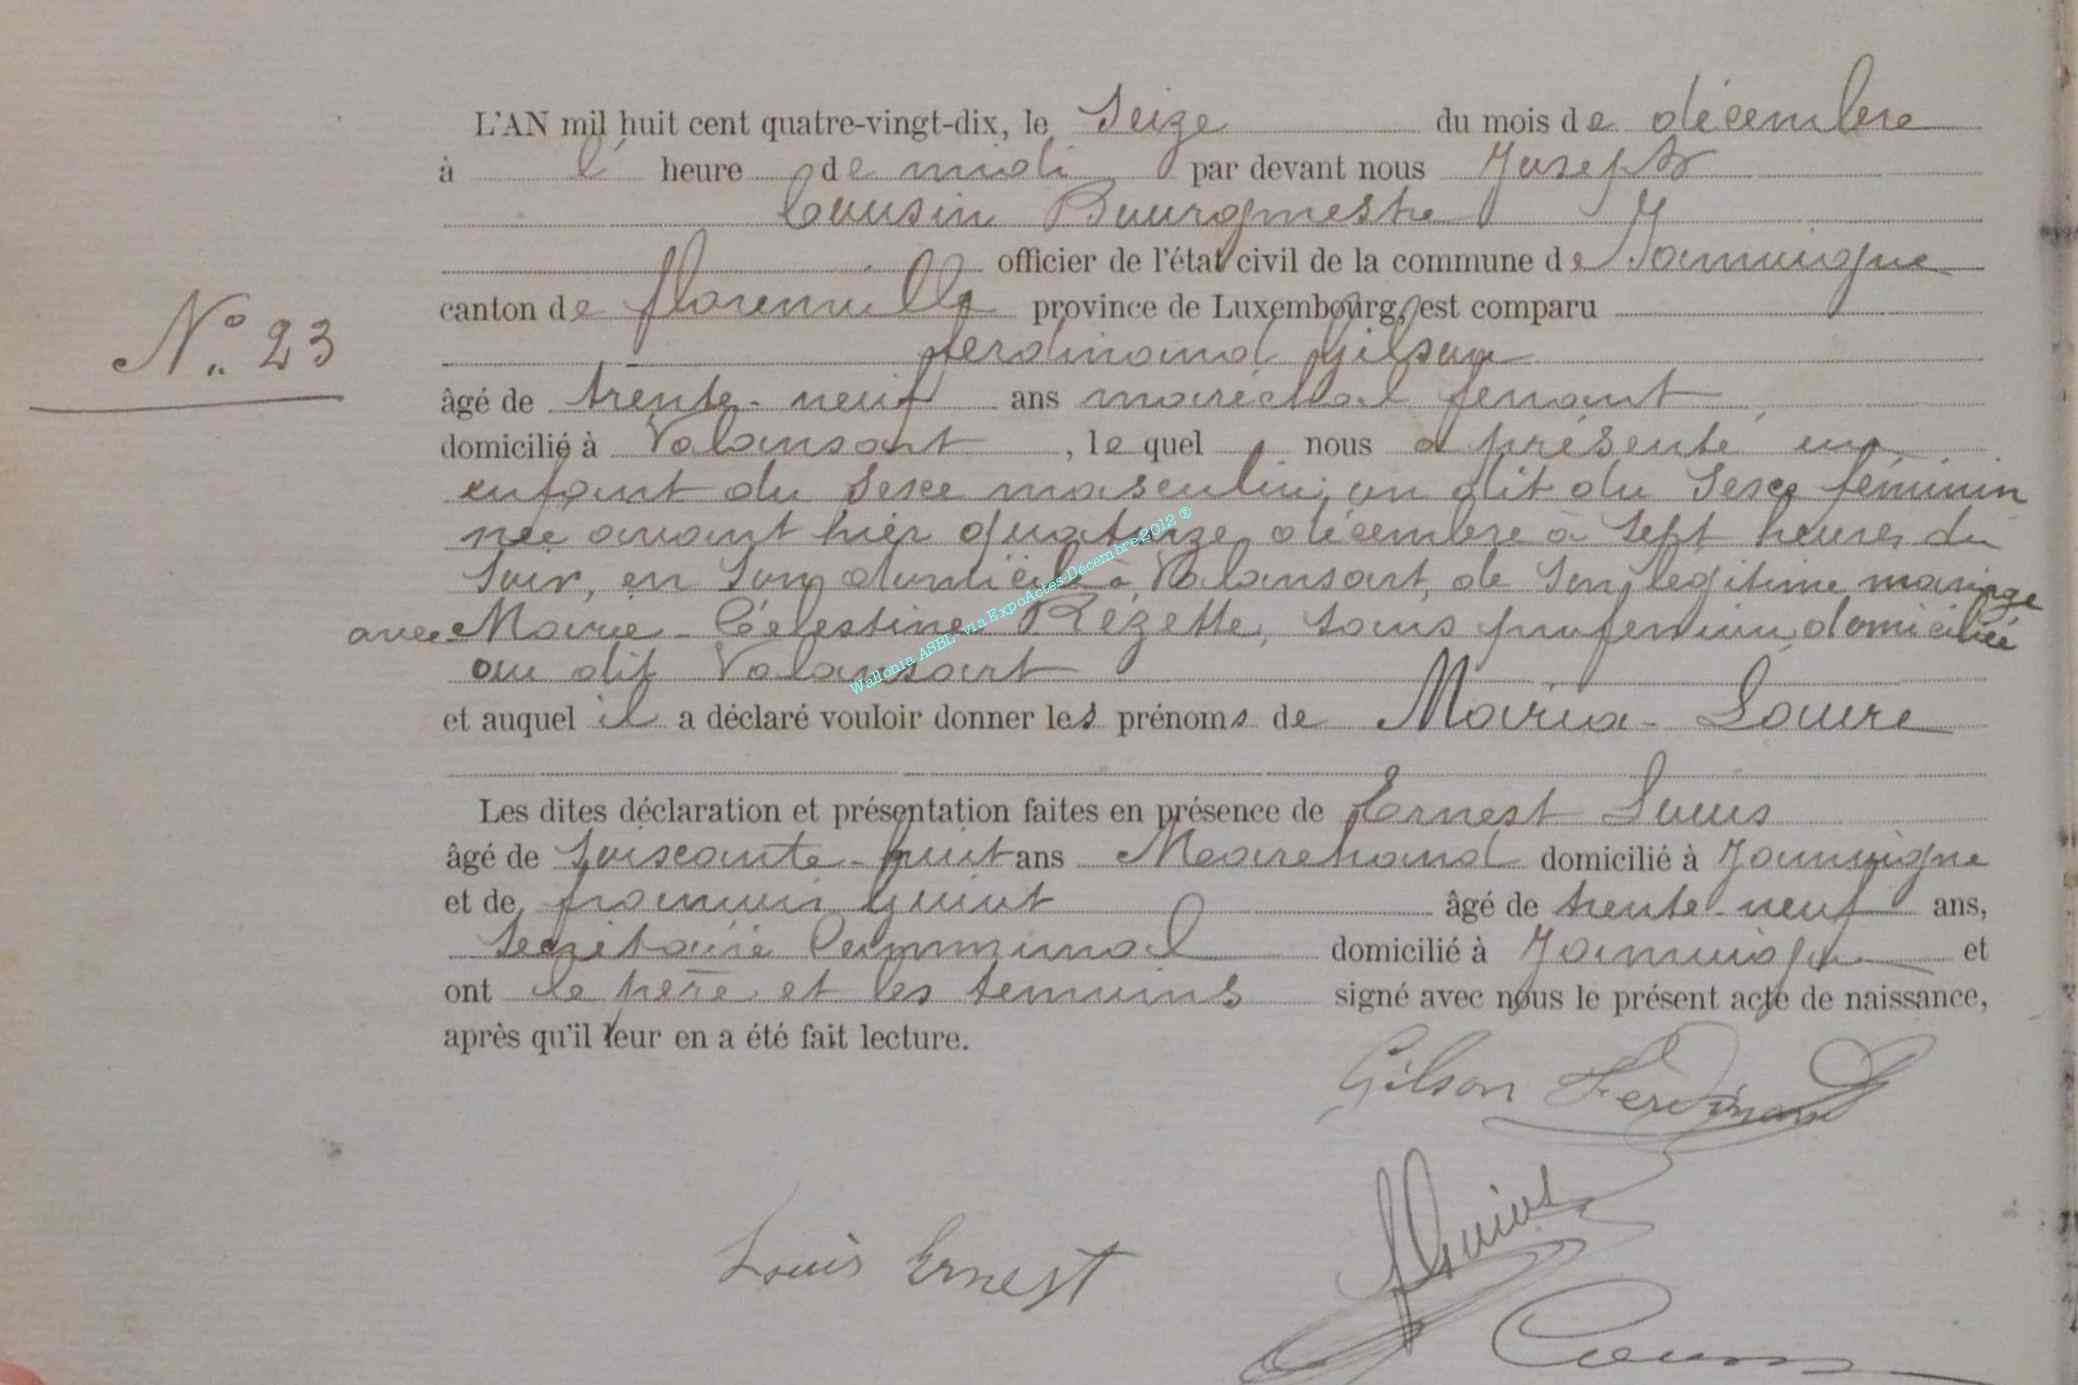 L'AN mil huit cent quatre-vingt-dix, le Seize du mois de décembre
à l' heure de midi par devant nous Joseph
Cousin Bourgmestre
officier de l'état civil de la commune de Jamoigne
N° 23
canton de florenville province de Luxembourg, est comparu
ferdinand gilson
âgé de trente-neuf ans maréchal ferrant,
domicilié à Valansart, lequel nous a présenté un
enfant du sexe masculin, on dit du sexe féminin
née avant hier quatorze décembre à sept heures du
soir, en son domicile à Valansart, de son legitime mariage
avec Marie-Célestine Rézette, sans profession, domiciliée
au dit Valansart
et auquel il a déclaré vouloir donner les prénoms de Maria-Laure
Les dites déclaration et présentation faites en présence de Ernest Louis
âgé de soixante-huit ans Marchand domicilié à Jamoigne
et de françois guiot âgé de trente-neuf ans,
Secrétaire Communal domicilié à Jamoigne et
ont le père et les temoins signé avec nous le présent acte de naissance,
après qu'il leur en a été fait lecture.
Gilson Ferdinand
Louis Ernest
Wallonia ASBL- via ExpoActes-Décembre 2012 ®